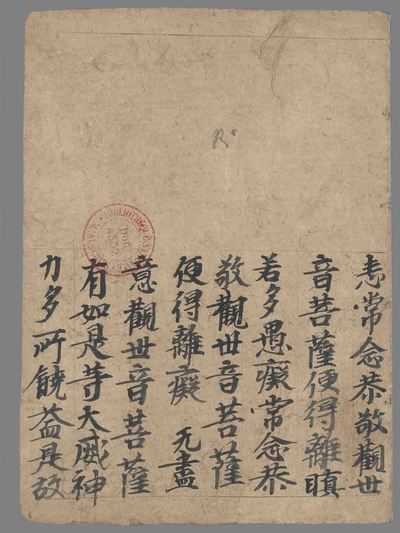 恚常念恭敬觀世
音菩薩便得離瞋
若多愚癡常念恭
敬觀世音菩薩
便得離癡 无盡
意觀世音菩薩
有如是等大威神
力多所饒益是故